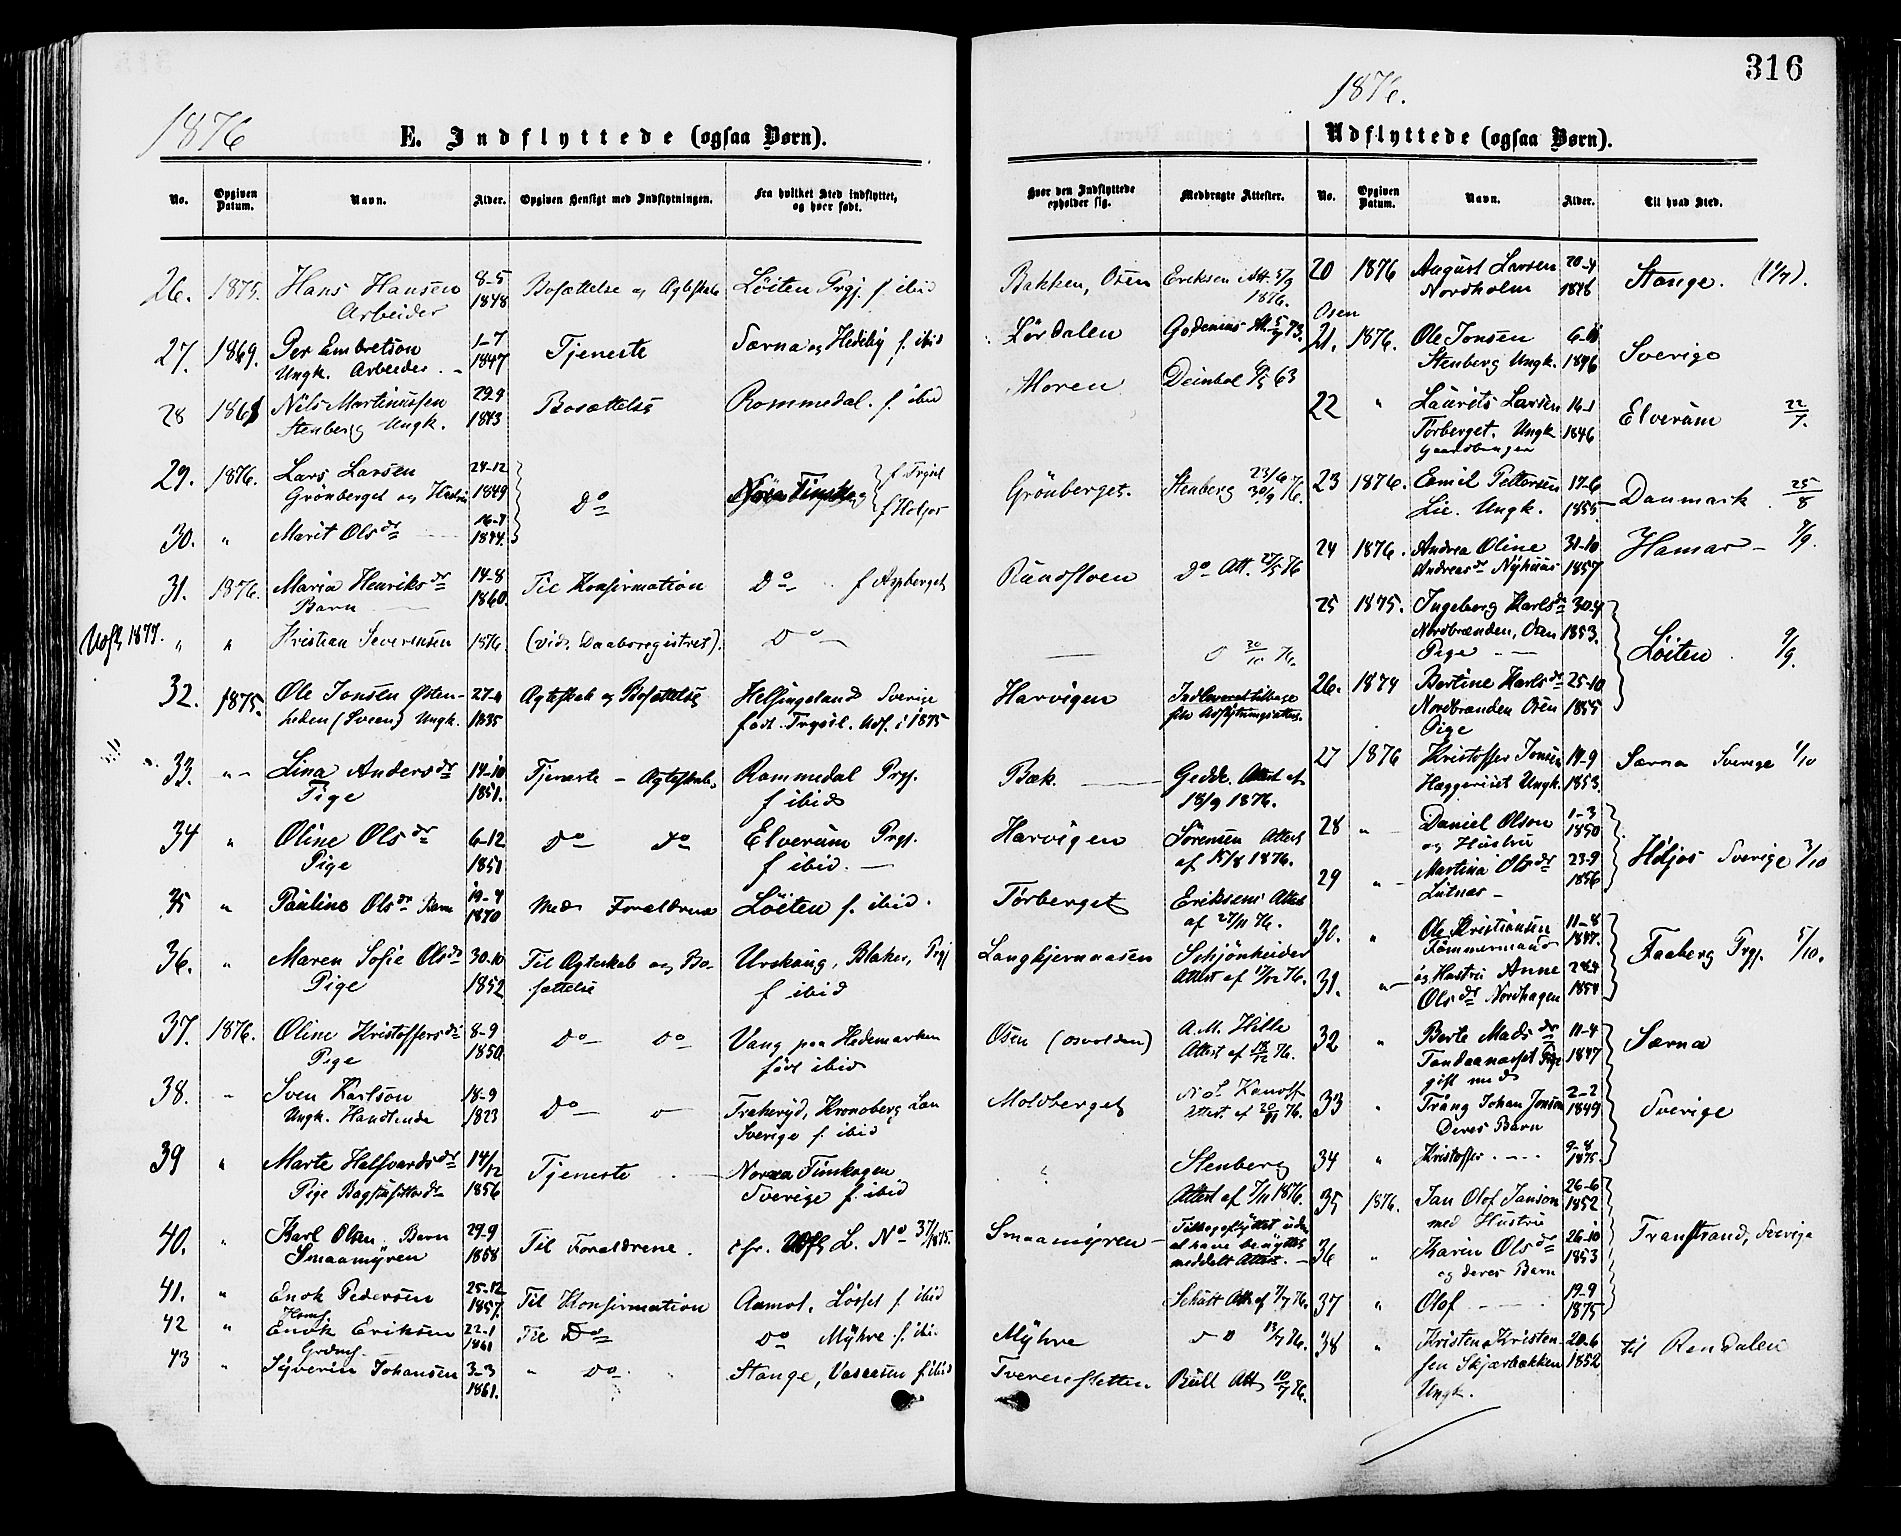 316
1876
1876.
E. Indflyttede (ogsaa Børn).
Udflyttede (ogsaa Børn).
No. Opgiven Datum. Navn. Alder. Opgiven Hensigt med Indflytningen. Fra hvilket Sted indflyttet, og hvor født.
Hvor den Indflyttede opholder sig. Medbragte Attester. No. Opgiven Datum. Navn. Alder. Til hvad Sted.
26. 1875. Hans Hansen 8-5 Bosættelse og Ægteskab Löiten Prgj. f. ibid Bakken, Osen Eriksen Att. 5/9
Arbeider 1848 1876.
27. 1869. Per Embretson 1-7 Tjeneste Særna og Hedeby f. ibid Lördalen
Ungk. Arbeider 1847
28 Nils Martinussen 29-9 Bosættelse Rommedal. f. ibid Moren Deinbol 63
Stenberg Ungk. 1843
29. 1876. Lars Larsen 24-12 f Trysil Grönberget. Stenberg 23/6
Grönberget og Hustru 1849 Do f Höljes 30/9 76.
30. " Marit Olsdr 1844.
31. 1876. Maria Henriksdr 14-8 Til Konfirmation Do f Aspberget Rundfloen Do Att. 27/5 76
Barn 1860.
1877. " " Kristian Severensen 1876 (vid. Daabsregistret). Do 20/10 76.
32. 1875. Ole Jonsen Östen- 27-4 Ægteskab og Bosættelse Helsingeland Sverige Harvigen Indleveret tilbage
heden (Sveen) Ungk. 1835 född Trysil. Udf. i 1875
33. Lina Andersdr 14-10 Tjeneste - Ægteskab Rommedal Prgj. Bæk. Gedde. Attest af
Pige 1851. f ibid 18/9 1876.
34 " Oline Olsdr 6-12 Do Do Elverum Prgj. Harvigen Sörensen Attest
Pige 1851 f ibid. af 15/8 1876.
35 " Pauline Olsdr Barn 19-4 Med Forældrene Löiten f. ibid. Törberget Eriksens Attest
1870 af 27/11 76.
36. " Maren Sofie Olsdr 30-10 Til Ægteskab og Bo- Urskoug, Blaker, Prgj Langkjernaasen Schjönheider
Pige 1852 sættelse f ibid Attest af 76.
37. 1876. Oline Kristoffersdr 8-9 Do Do Vang paa Hedemarken Osen (Osvolden) A.M. Hille
Pige 1850. född ibid Attest af 76.
38. Sven Karlson 18-9 Do Traheryd, Kronoberg Län Moldberget
Ungk. Handlende 1823 Sverige f. ibid Attest af 76.
39 " Marte Halfvardsdr 14/12 Tjeneste Norra Finskogen " Stenberg
Pige 1856 Sverige f. ibid Attest af 7/11 1876.
40. " Karl Olsen. Barn 29-9 Til Forældrene. cfr. L. No 37/1875. Smaamyren Tilbageflyttet uden
Smaamyren 1858 at have benyttet
meddelt Attest.
41. " Enok Pedersen 25-12 Til Konfirmation Aamot, Lösset f. ibid Schött Att af 76.
1857.
42 " Enok Eriksen 22-1 Til Do Do Myhre f. ibi. Myhre Do 13/7 76.
1861
43 " Syverin Johansen 3-3 " Do " Stange, Vasaasen f ibid Tverenfletten Bull Att 10/7 76.
1861.
20 1876 August Larsen 20-4 Stange.
Nordholm 1846
Osen
21. 1876. Ole Jonsen Sverige
Stenberg Ungk. 1846
22 " Laurits Larsen 16-1 Elverum 22/7.
Törberget. Ungk 1846
23 1876. Emil Pettersen 17-6 Danmark. 25/8
Lie. Ungk. 1855
24 1876. Andrea Oline 31-10 Hamar
Andreasdr Nyhuus 1857
25 1875. Ingeborg Karlsdr 30-4
Nordbrænden, Osen 1853.
Pige Löiten
26. 1874 Bertine Karlsdr 25-10
Nordbrænden Osen 1855
Pige
27 1876 Kristoffer Jonsen 19-9 Særna Sverige 1/10
Haggeriset Ungk. 1853.
28 " Daniel Olson 1-3
og Hustru 1850 Höljes Sverige 3/10
29 " Martina Olsdr 23-9
Lutnes 1856
30. " Ole Kristiansen 11-8
Tömmermand 1847. Faaberg Prgj. 5/10.
31. " og Hustru Anne
Olsdr Nordhagen 1854
32 " Berte Madsdr 11-4 Særna
Tandaanæset Pige 1847
gift med
33 " Trång Johan Jonson 2-2 Sverige
Deres Barn 1849
34 " Kristoffer 9-8
1875
35 1876. Jan Olof Janson 26-6
med Hustru 1852
36 " Karin Olsdr 26-10 Transtrand, Sverige
og deres Barn 1853
37 " Olof 19-9
1875
38 " Kristen Kristen- 20-6 til Rendalen
sen Skjærbækken 1852
Ungk.